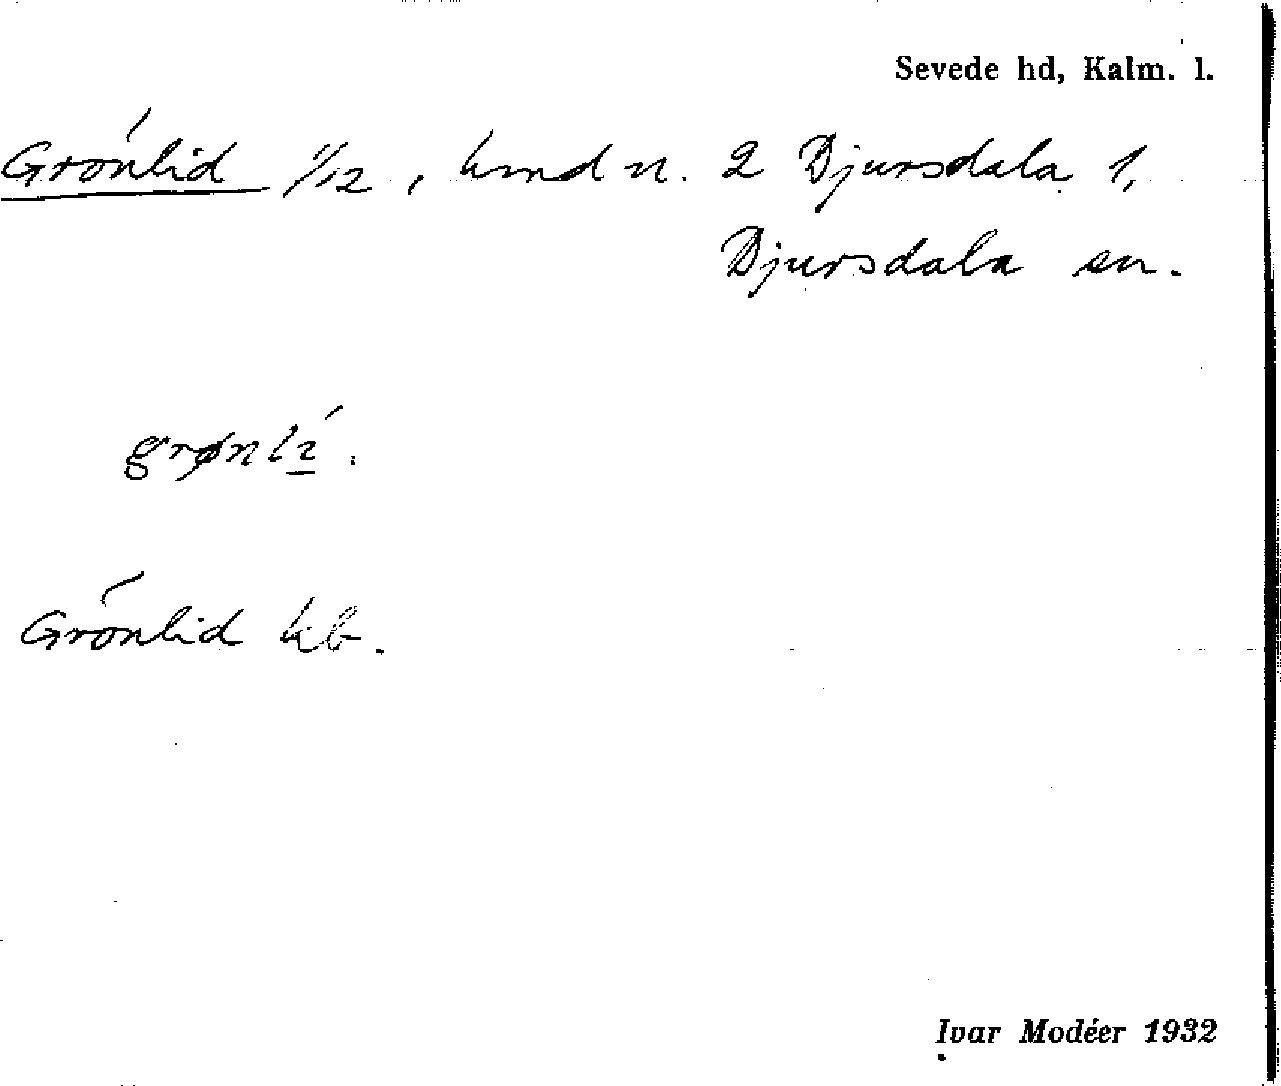 Sevede hd, Kalm. l.
Grönlid 1/12, hmd n. 2 Djursdala 1,
Djursdala sn.
grønlí.
Grönlid kb.
Ivar Modéer 1932